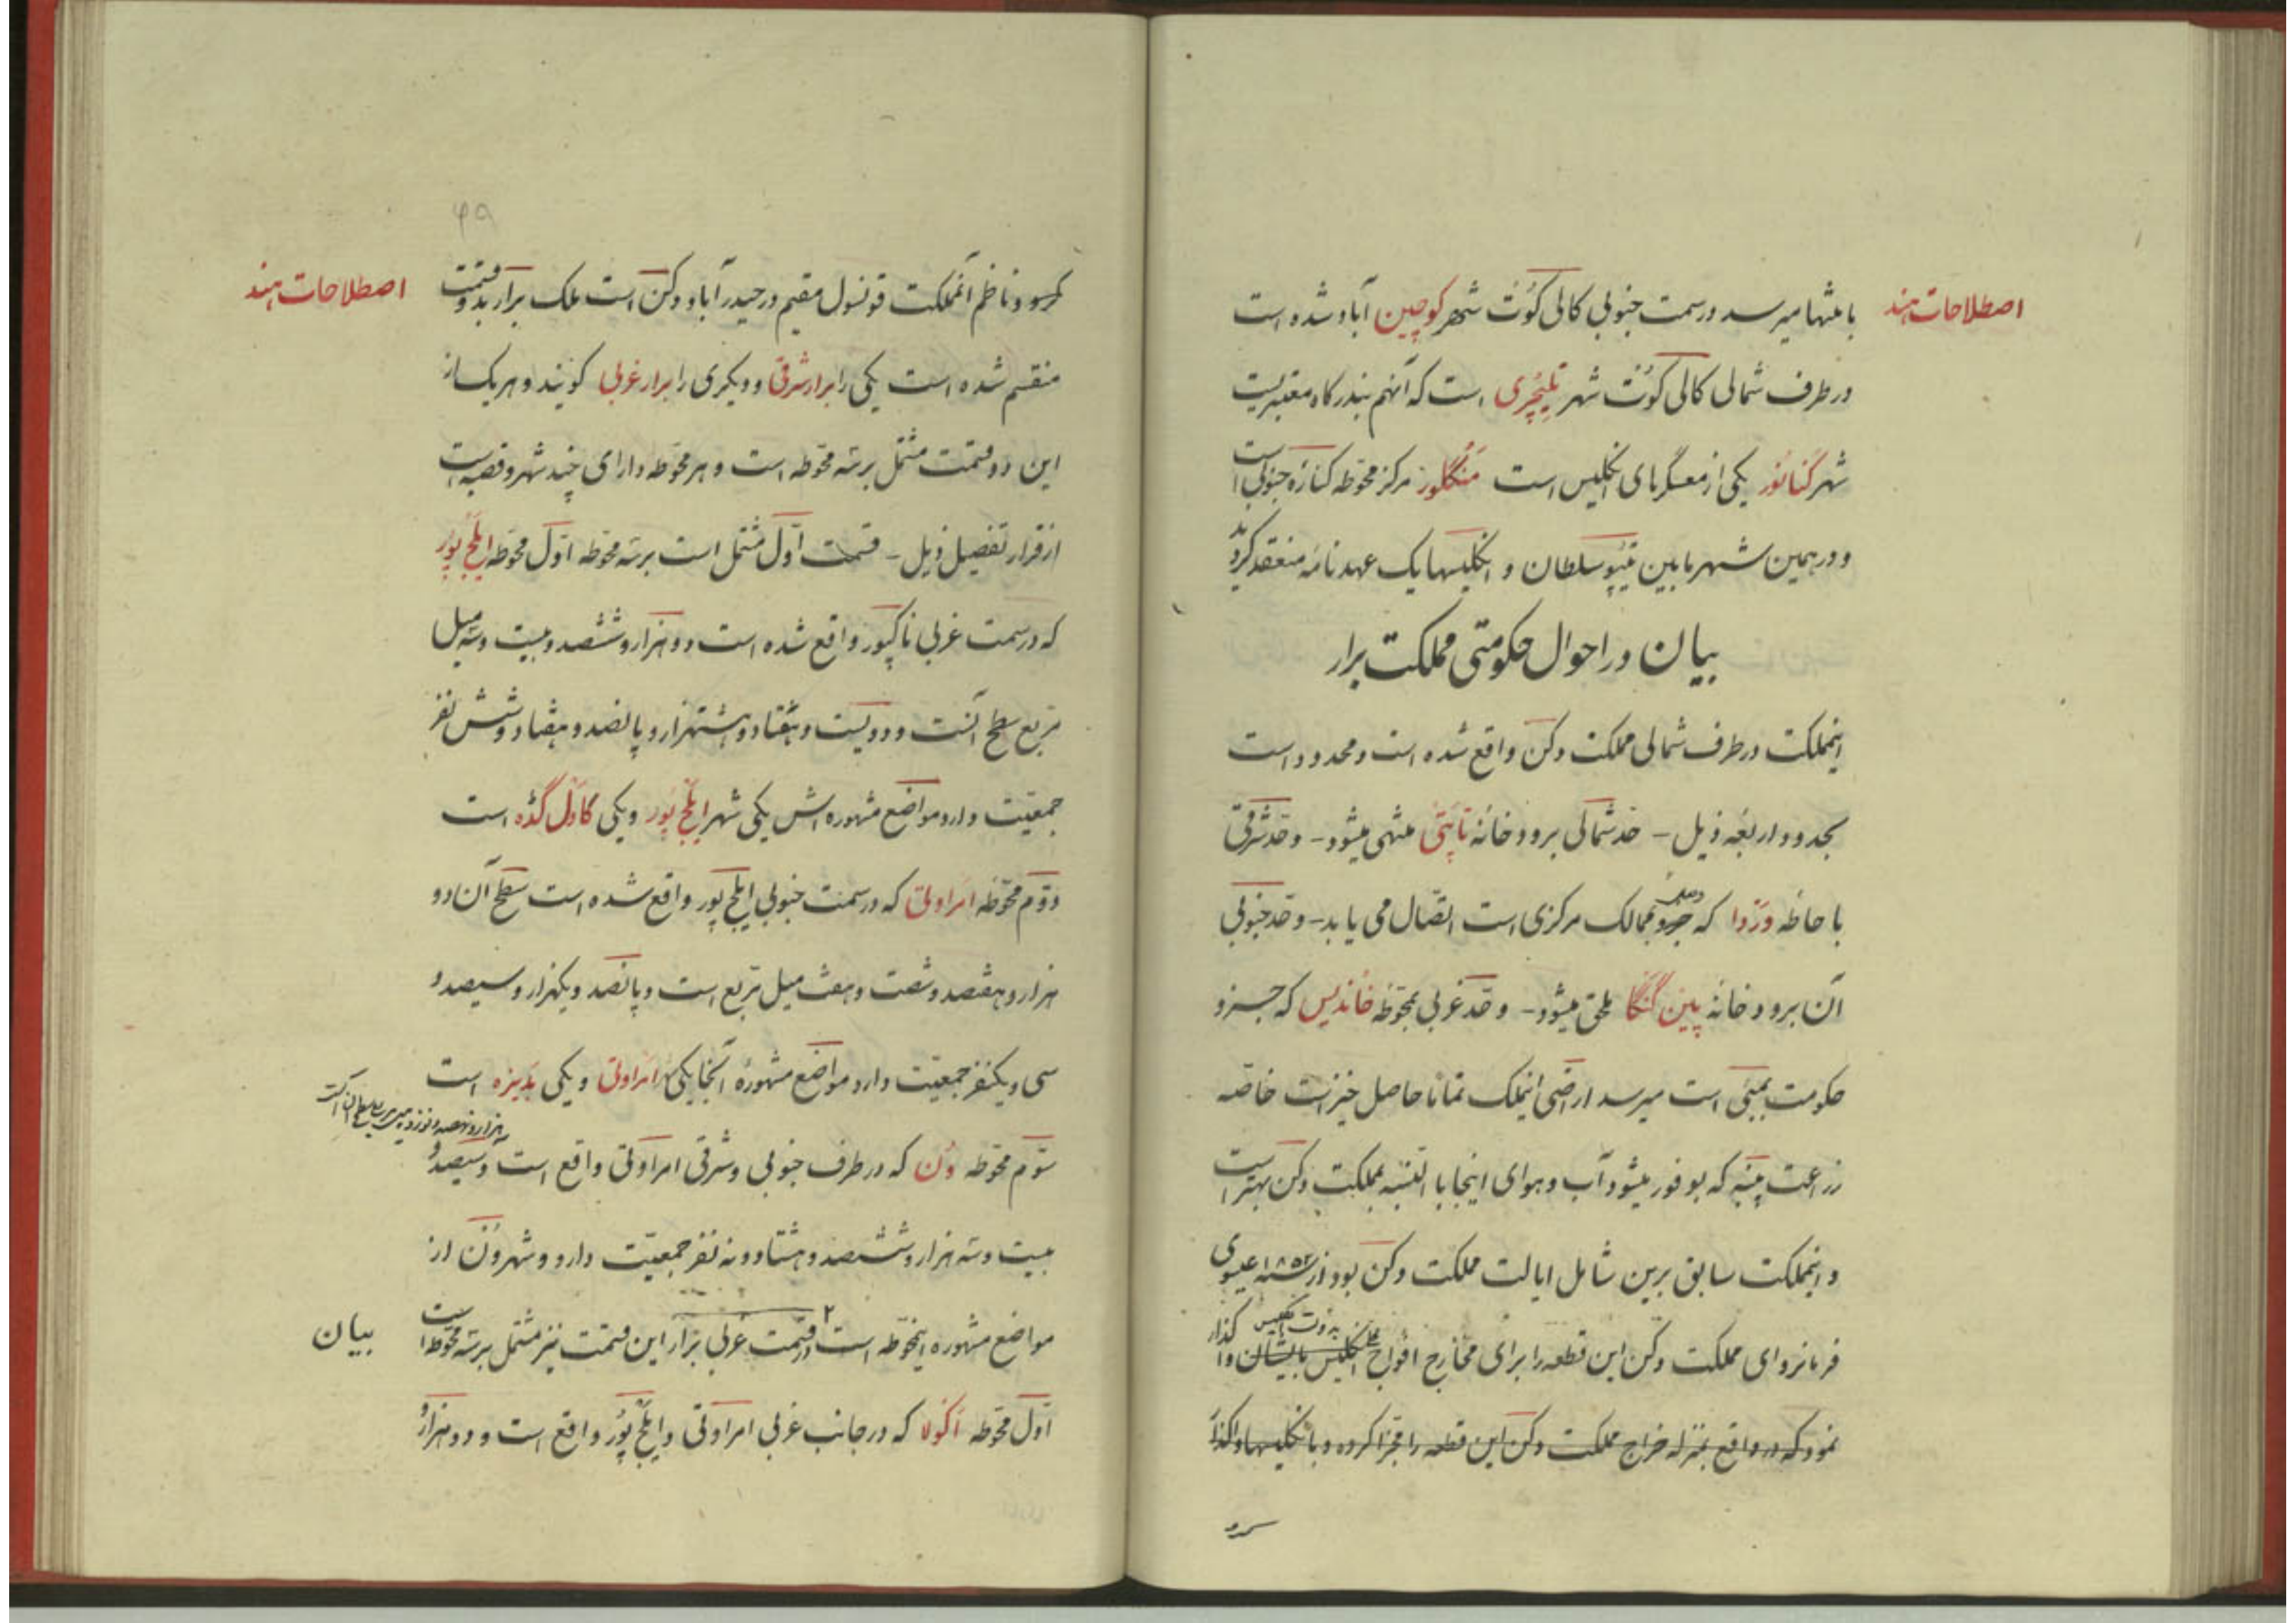 اصطلاحات هند
بانتها میرسد در سمت جنوبی کالی کوت شهر کوچین آباد شده است
در طرف شمالی کالی کوت شهر تلیچری است که آنهم بندرگاه معتبریست
شهر کنانور یکی از معسگرهای انگلیس است منگلور مرکز محوطه کناره جنوبی است
و در همین شهر مابین تیپو سلطان و انگلیسها یک عهدنامه منعقد گردید
بیان در احوال حکومتی مملکت برار
اینمملکت در طرف شمالی مملکت دکن واقع شده است و محدود است
بحدود اربعه ذیل - حد شمالی برودخانه تاپتی منتهی میشود - و حد شرقی
با حاطه وردا که جزو ممالک مرکزی است اتصال می یابد - و حد جنوبی
آن برودخانه پین گنگا ملحق میشود - و حد غربی بمحوطه خاندیس که جزو
حکومت بمبئی است میرسد اراضی اینملک تماما حاصل خیز است خاصه
زراعت پنبه که بوفور میشود آب و هوای اینجا بالنسبه بمملکت دکن بهتر است
و اینمملکت سابق برین شامل ایالت مملکت دکن بود در سنه ۱۸۵۳ عیسوی
فرمانروای مملکت دکن این قطعه را برای مخارج افواج انگلیس بایشان واگذار
نمود که در واقع بمنزله خراج مملکت دکن این قطعه را مجزا کرده و بانگلیسها واگذار
اصطلاحات هند
۴۹
و ناظم آنمملکت قونسول مقیم در حیدرآباد دکن است ملک برار بدو قسمت
منقسم شده است یکی را برار شرقی و دیگری را برار غربی گویند و هر یک از
این دو قسمت مشتمل بر سه محوطه است و هر محوطه دارای چند شهر و قصبه است
از قرار تفصیل ذیل - قسمت اول مشتمل است بر سه محوطه اول محوطه ایلچ پور
که در سمت غربی ناگپور واقع شده است دو هزار و ششصد و بیست و سه میل
مربع سطح آنست و دویست و هفتاد و هشتهزار و پانصد و هفتاد و شش نفر
جمعیت دارد مواضع مشهوره اش یکی شهر ایلچ پور و یکی کاول گده است
دوم محوطه امراوتی که در سمت جنوبی ایلچ پور واقع شده است سطح آن دو
هزار و هفتصد و شصت و هفت میل مربع است و پانصد و یکهزار و سیصد و
سی و یکنفر جمعیت دارد مواضع مشهوره آنجا یکی امراوتی و یکی بدیزه است
سوم محوطه ون که در طرف جنوبی و شرقی امراوتی واقع است و سیصد و
بیست و سه هزار و ششصد و هشتاد و نه نفر جمعیت دارد و شهر ون از
مواضع مشهوره اینمحوطه است ۲ قسمت غربی برار این قسمت نیز مشتمل بر سه محوطه است
اول محوطه اکولا که در جانب غربی امراوتی و ایلچ پور واقع است و دو هزار و
بیان